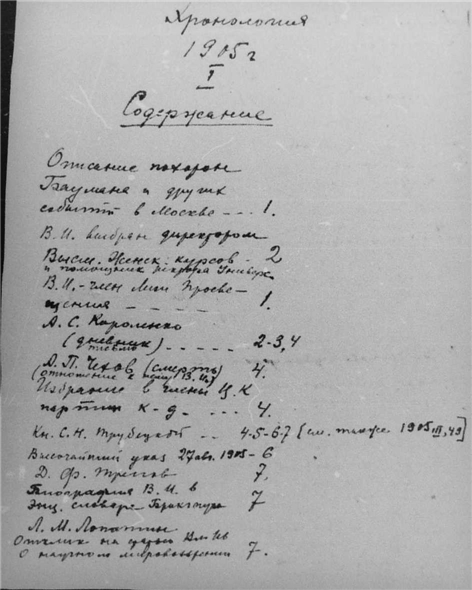 Хронология
1905 г
I
Содержание
Описание похорон
Баумана и других
событий в Москве - - - 1.
В.И. выбран директором
Высш. Женск. курсов - 2
и помощник ректора Универс
В.И. - член Лиги Просве-
щения - - - - - 1.
А. С. Короленко
(дневник) - - - - - 2-3,4
письмо
А. П. Чехов (смерть) 4.
(отношение к нему В.И.)
Избрание в члены Ц.К
партии к-д - - - 4.
Кн. С.Н. Трубецкой - - 4-5-6-7 [см. также 1905, III, 49]
Высочайший указ 27 авг. 1905 - 6
Д. Ф. Трепов 7,
Биография В.И. в
Энц. словаре Брокгауза 7
Л. М. Лопатин
Отклик на статью
О научном мировоззрении 7.